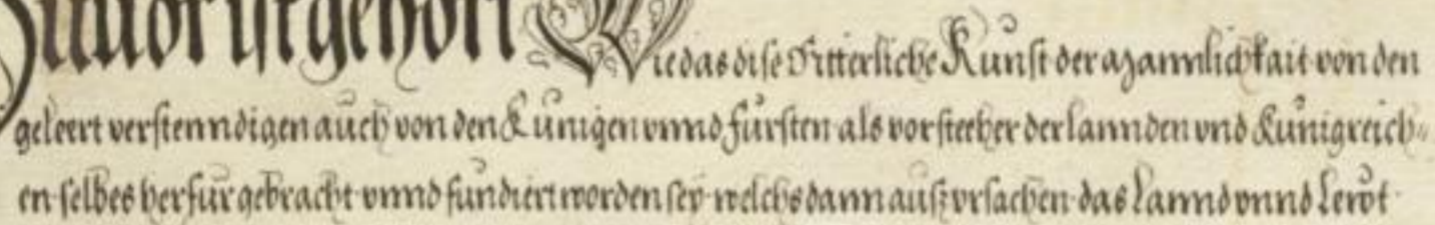 Zuuor ist gehört Wie das dise Ritterliche Kunst der Mannlichkait von den
geleert verstenndigen auch von den Kunigen vnnd fürsten als vorsteeher der lannden vnd Kunigreich=
en selbes herfür gebracht vnnd fundiert worden sey welchs dann auß vrsachen das Lannd vnnd Lewt